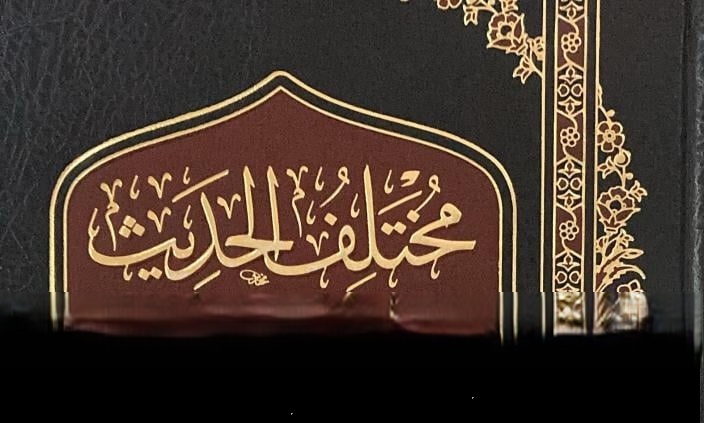 مُختَلِفُ الحَدِيث